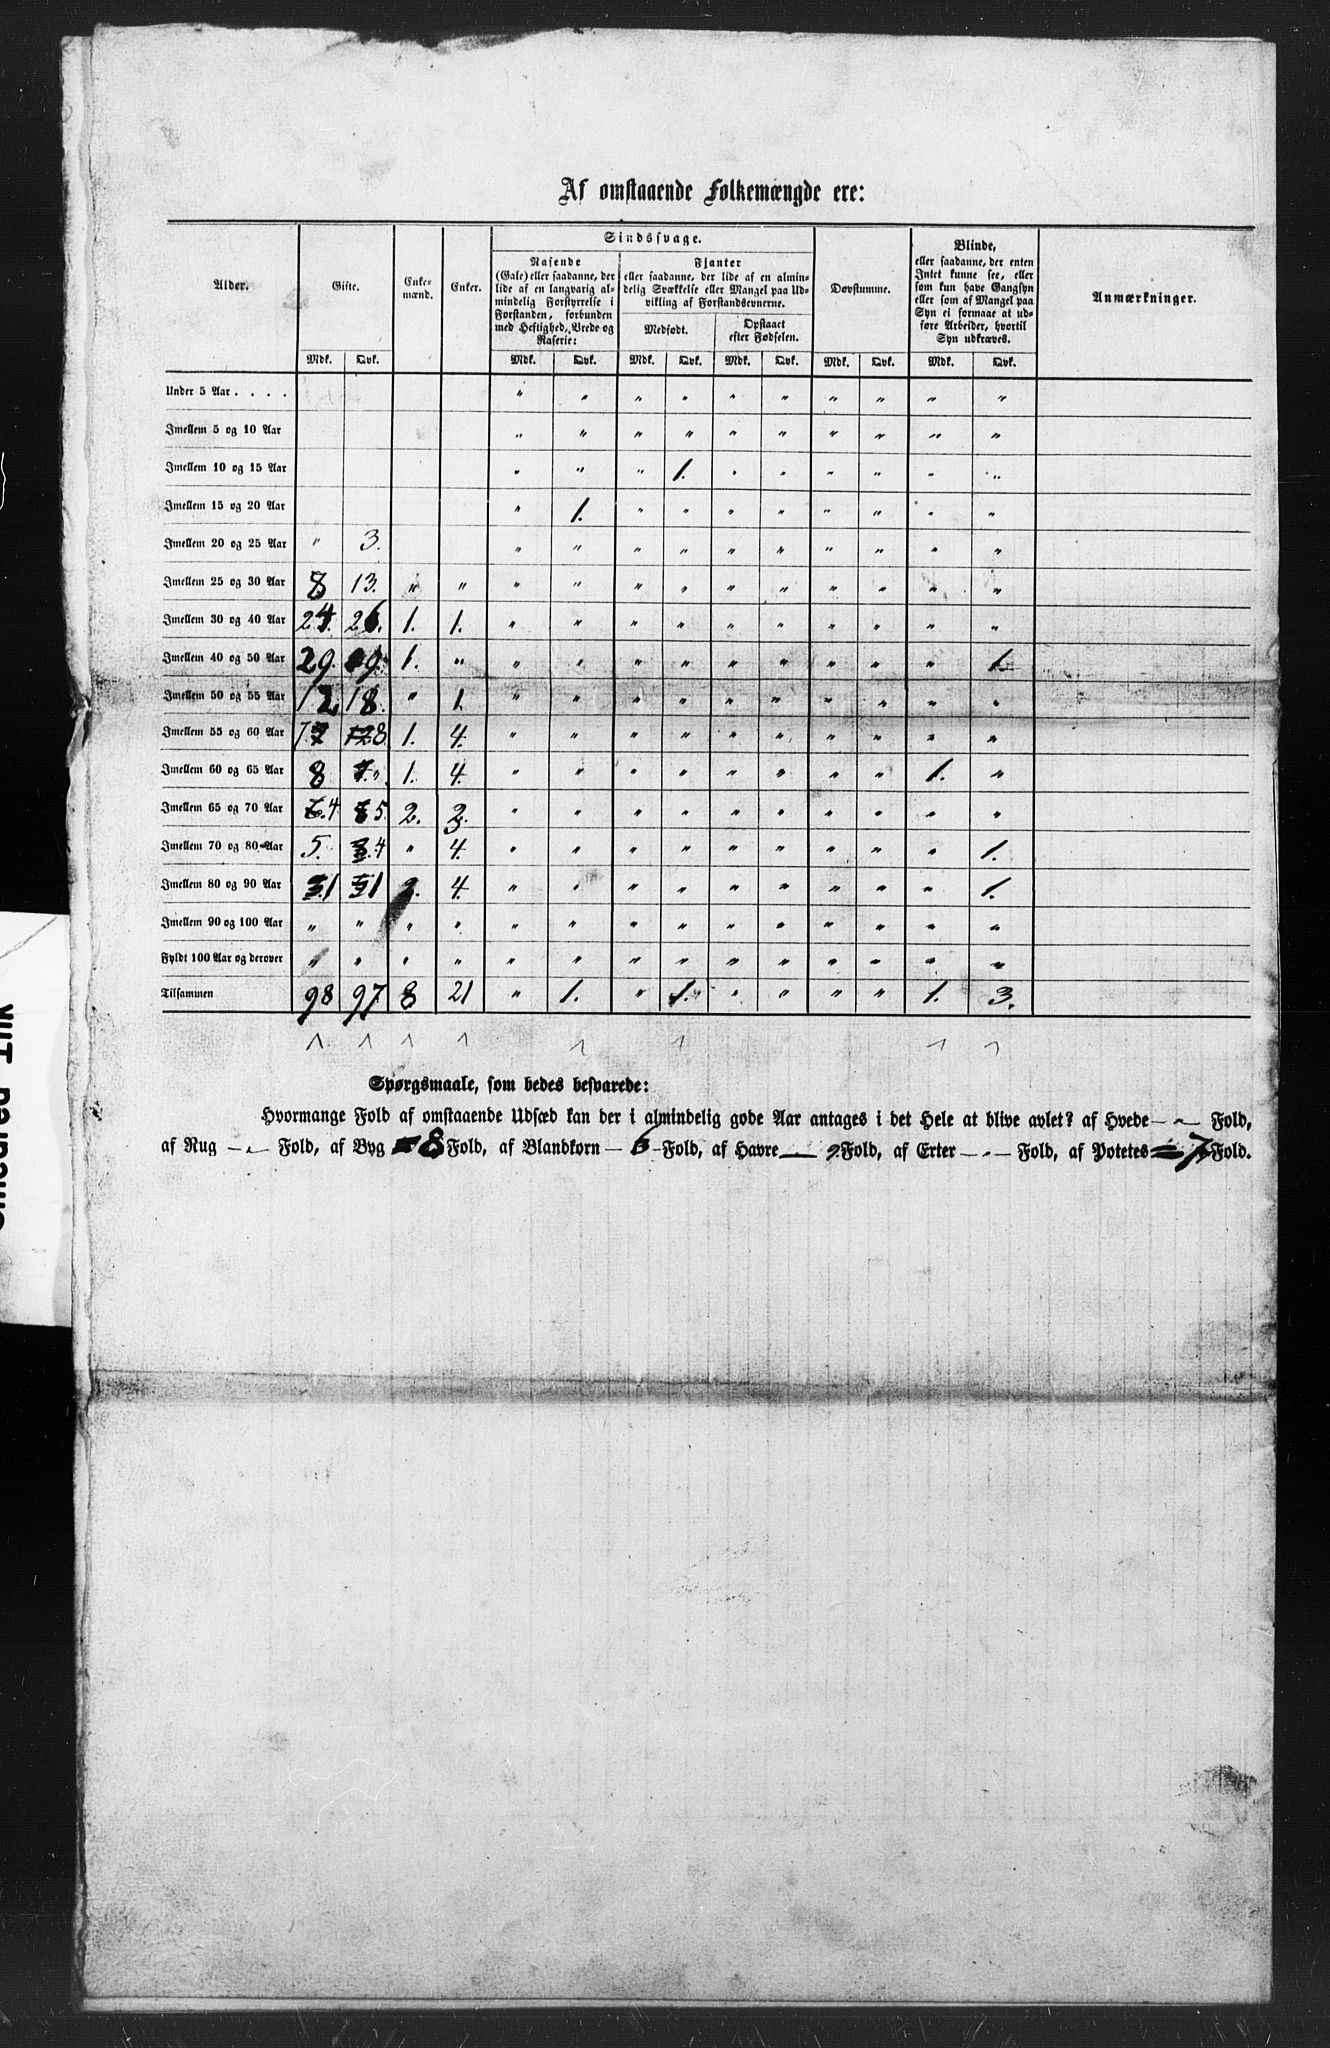 Af omstaaende Folkemængde ere:
Alder. Gifte. Enke-mænd. Enker. Sindssvage. Døvstumme. Blinde, Anmærkninger.
Rasende
(Gale) eller saadanne, der
lide af en langvarig al-
mindelig Forstyrrelse i
Forstanden, forbunden
med Heftighed, Vrede og
Raserie:
Fjanter
eller saadanne, der lide af en almin-
delig Svækkelse eller Mangel paa Ud-
vikling af Forstandsevnerne.
Medfødt. Opstaaet
efter Fødselen.
eller saadanne, der enten
Intet kunne see, eller
som kun have Gangsyn
eller som af Mangel paa
Syn ei formaae at ud-
føre Arbeider, hvortil
Syn udkræves.
Mdk. Qvk. Mdk. Qvk. Mdk. Qvk. Mdk. Qvk. Mdk. Qvk. Mdk. Qvk.
Under 5 Aar . . . . " " " " " " " " " "
Imellem 5 og 10 Aar " " " " " " " " " "
Imellem 10 og 15 Aar " " " 1. " " " " " "
Imellem 15 og 20 Aar " 1. " " " " " " " "
Imellem 20 og 25 Aar " 3. " " " " " " " " " "
Imellem 25 og 30 Aar 8 13. " " " " " " " " " " " "
Imellem 30 og 40 Aar 24. 26. 1. 1. " " " " " " " " " "
Imellem 40 og 50 Aar 29. 9. 1. " " " " " " " " " " 1.
Imellem 50 og 55 Aar 12, 18. " 1. " " " " " " " " " "
Imellem 55 og 60 Aar 7 8. 1. 4. " " " " " " " " " "
Imellem 60 og 65 Aar 8 " 1. 4. " " " " " " " " 1. "
Imellem 65 og 70 Aar 4 5. 2. 3. " " " " " " " " " "
Imellem 70 og 80 Aar 5. 4 " 4. " " " " " " " " " 1.
Imellem 80 og 90 Aar 1 1 2. 4. " " " " " " " " " 1.
Imellem 90 og 100 Aar " " " " " " " " " " " " " "
Fyldt 100 Aar og derover " " " " " " " " " " " " " "
Tilsammen 98 97. 8 21 " 1. " 1. " " " " 1. 3.
Spørgsmaale, som bedes besvarede:
Hvormange Fold af omstaaende Udsæd kan der i almindelig gode Aar antages i det Hele at blive avlet? af Hvede — " — Fold,
af Rug — " — Fold, af Byg 8 Fold, af Blandkorn — 6 — Fold, af Havre — 9. Fold, af Erter — " — Fold, af Potetes 7, Fold.